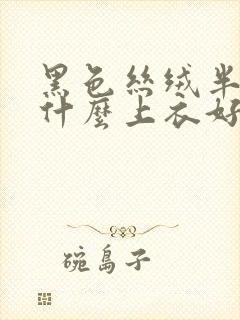 黑色絲绒半
什麼上衣好
碗島子